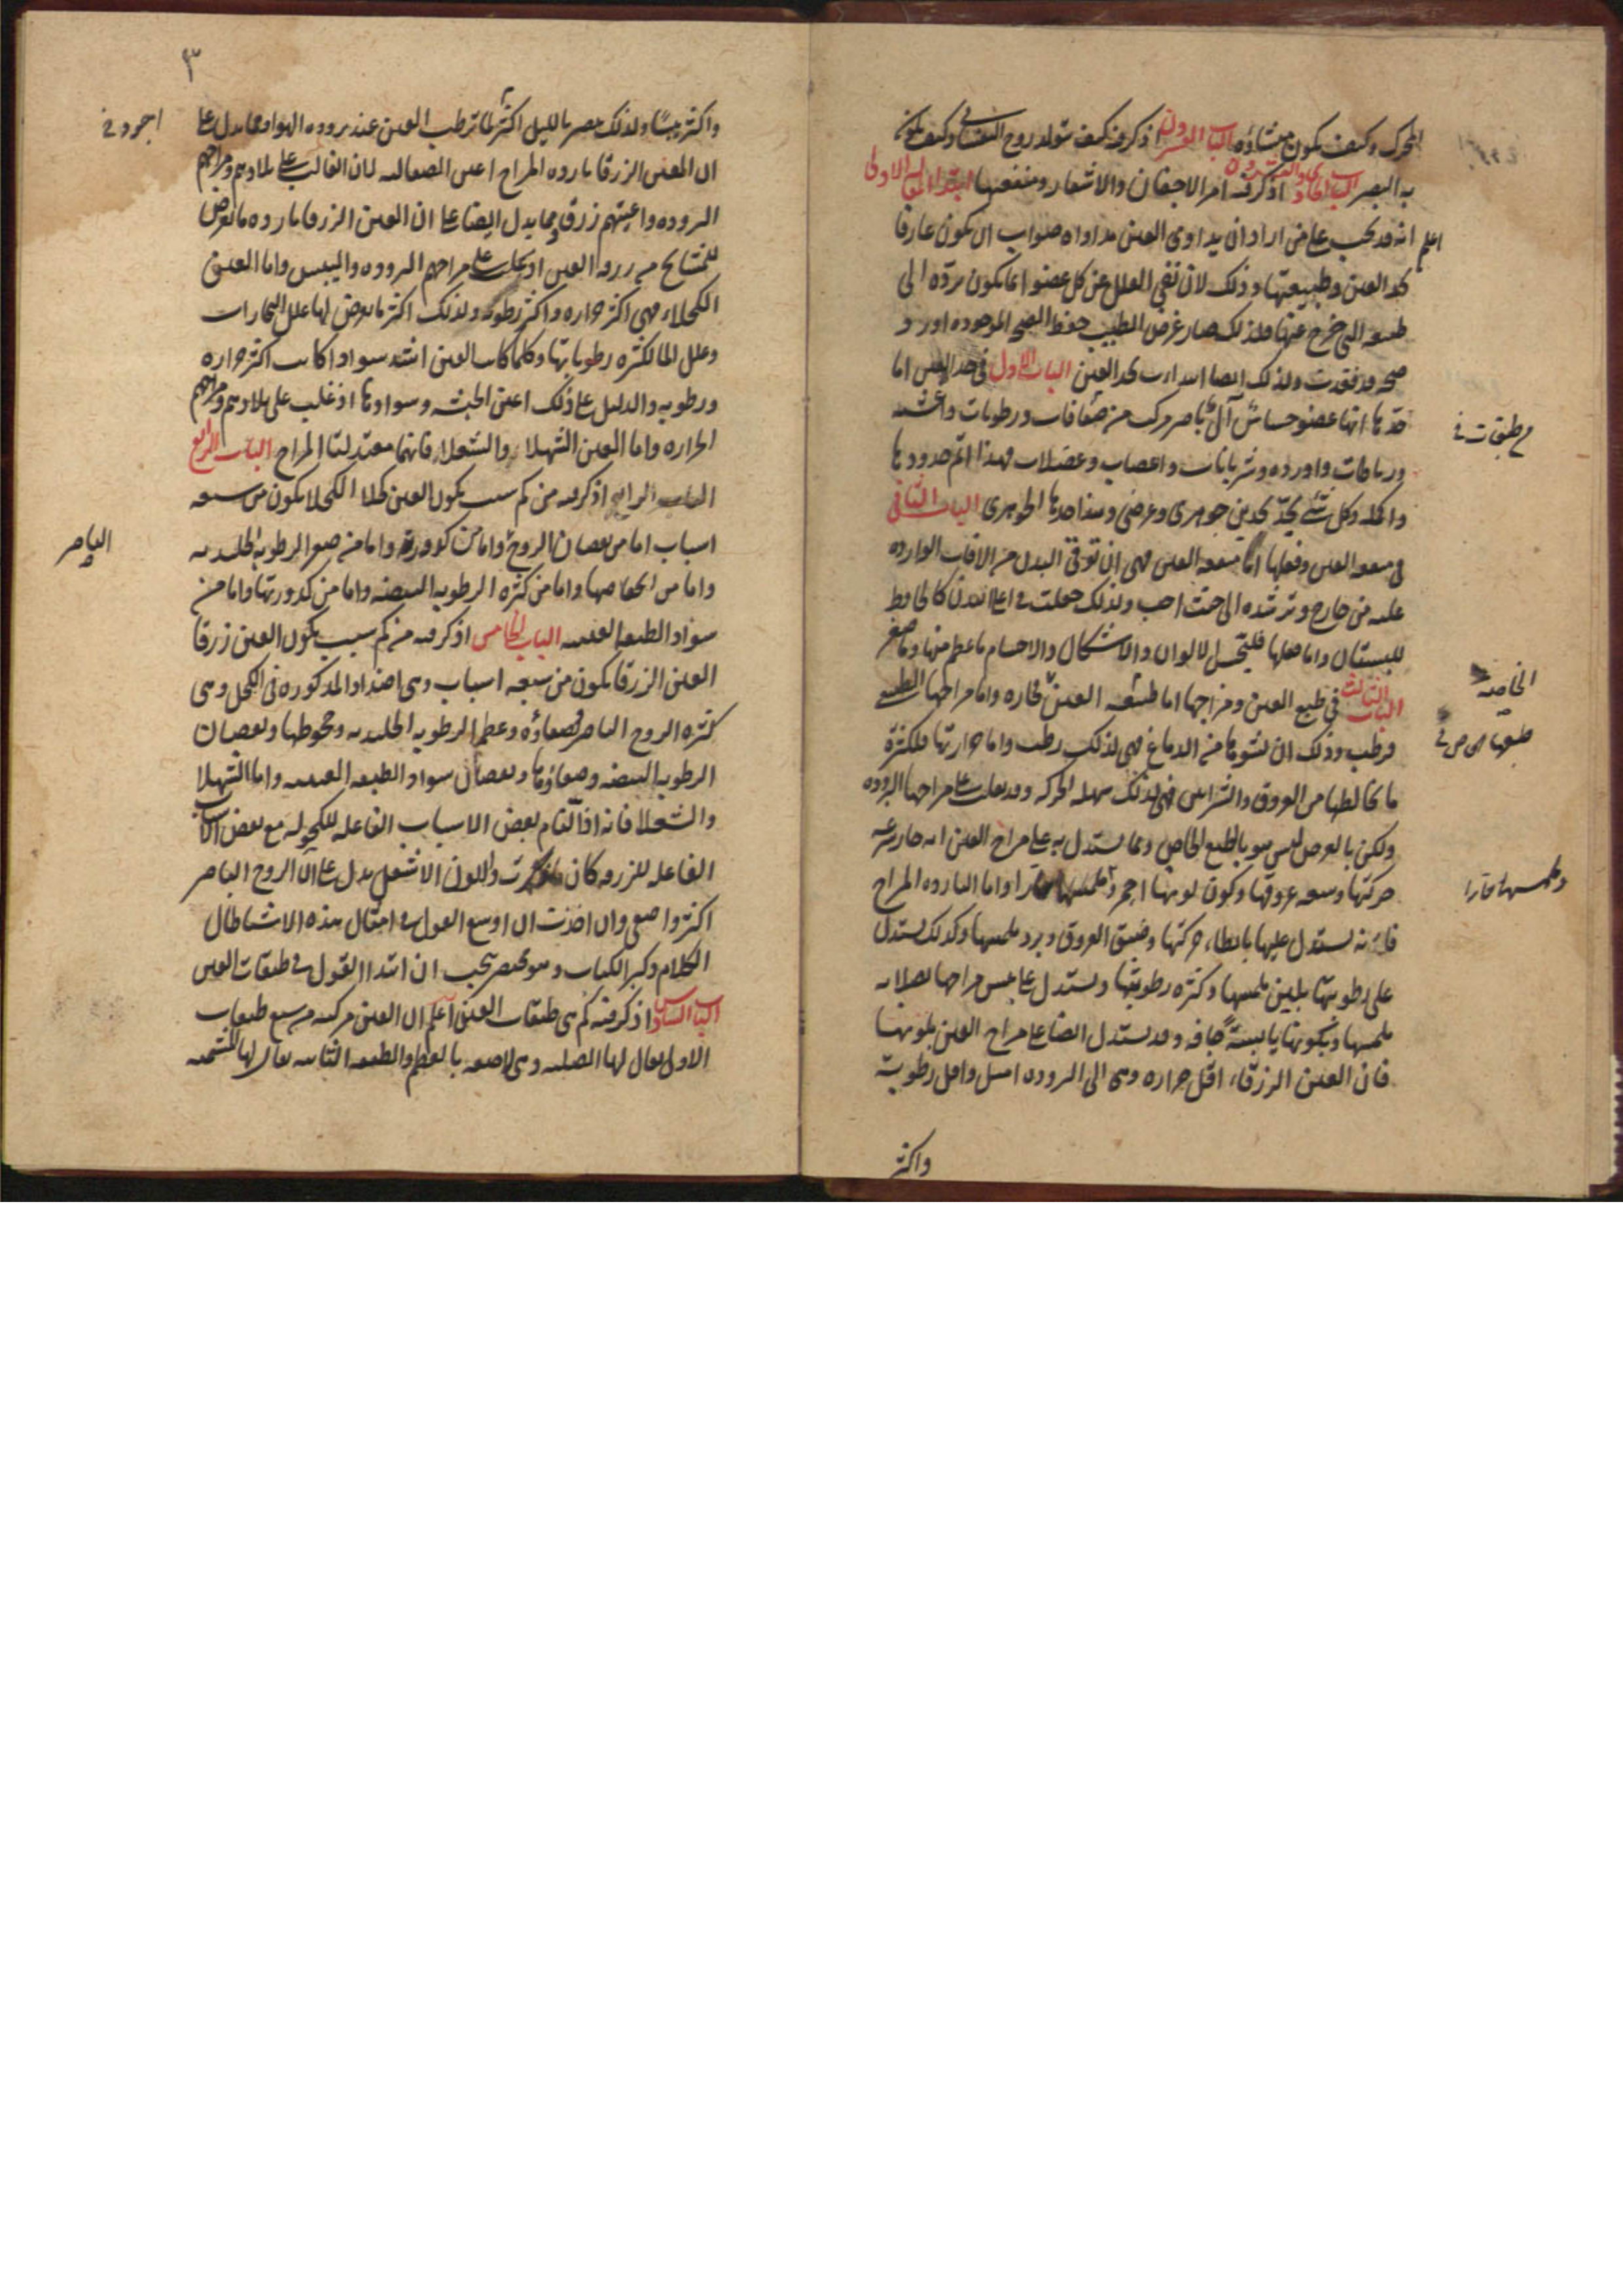 المحرك وكيف يكون منشاؤه الباب العشرون اذكر فيه كيف تتولد روح النفساني وكيف يكون
به البصر الباب الحادي والعشرون اذكر فيه امر الاجفان والاشفار ومنفعتها ابتدا المقاله الاولى
اعلم انه قد يجب على من اراد ان يداوى العين مداواه صواب ان يكون عارفا
بحد العين وطبيعتها وذلك لان نفى العلل عن كل عضو انما يكون بردّه الى
طبعه التي خرج عنها ولذلك صار غرض الطبيب حفظ الصحه الموجوده او رد
صحه قد فقدت ولذلك ايضا ابتدات بحد العين الباب الاول في حد العين اما
حدّها انها عضو حساس آلي باصر مركب من صفاقات ورطوبات واغشيه
م طبقات خ
ورباطات واورده وشريانات واعصاب وعضلات فهذا اتم حدودها
واكمله وكل شئ يحدّ بحدين جوهرى وعرضى وهذا حدها الجوهرى الباب الثاني
في منفعه العين وفعلها اما منفعه العين فهى ان توقى البدن من الافات الوارده
عليه من خارج وترشده الى حيث احب ولذلك جعلت في اعلا البدن كالحافظ
للبستان واما فعلها فليتحيل الالوان والاشكال والاجسام ما عظم منها وما صغر
الباب الثالث في طبع العين ومزاجها اما طبيعه العين فحاره واما مزاجها الطبيعي
الخاصه
فرطب وذلك ان نشوها من الدماغ فهى لذلك رطب واما حرارتها فلكثرة
ما يخالطها من العروق والشرايين فهى لذلك سهله الحركه وقد يغلب على مزاجها البروده
ولكن بالعرض ليس هو بالطبع الخاص ومما يستدل به على مزاج العين انه حار سرعه
حركتها وسعه عروقها وكون لونها احمر وملمسها حارا واما البارده المزاج
وملمسها حارا
فانه يستدل عليها بابطاء حركتها وضيق العروق وبرد ملمسها وكذلك يستدل
على رطوبتها بلين ملمسها وكثره رطوبتها ويستدل على يبس مزاجها بصلابه
ملمسها وبكونها يابسة جافه وقد يستدل ايضا على مزاج العين بلونها
فان العين الزرقاء اقل حراره وهى الى البروده اميل واقل رطوبة
واكثر
٣
واكثر يبسًا ولذلك يبصر بالليل اكثر لما ترطب العين عند بروده الهوا ومما يدل على
اجود خ
ان العين الزرقا بارده المزاج اعين الصقالبه لان الغالب على بلادهم ومزاجهم
البروده واعينهم زرق ومما يدل ايضا على ان العين الزرقا بارده ما يعرض
للمشايخ من زرقه العين اذ يغلب على مزاجهم البروده واليبس واما العين
الكحلاء فهى اكثر حراره واكثر رطوبه ولذلك اكثر ما يعرض لها علل البخارات
وعلل الما لكثره رطوباتها وكلما كانت العين اشد سوادا كانت اكثر حراره
ورطوبه والدليل على ذلك اعين الحبشه وسوادها اذ غلب على بلادهم ومزاجهم
الحراره واما العين الشهلاء والشعلاء فانهما معتدلتا المزاج الباب الرابع
الباب الرابع اذكر فيه من كم سبب يكون العين كحلا الكحلا يكون من سبعه
اسباب اما من نقصان الروح واما من كدورته واما من صغر الرطوبه الجليديه
الباصر
واما من انخفاضها واما من كثره الرطوبه البيضيه واما من كدورتها واما من
سواد الطبقه العنبيه الباب الخامس اذكر فيه من كم سبب يكون العين زرقا
العين الزرقا يكون من سبعه اسباب وهى اضداد المذكوره في الكحل وهى
كثره الروح الباصر وصفاؤه وعظم الرطوبه الجليديه وجحوظها ونقصان
الرطوبه البيضيه وصفاؤها ونقصان سواد الطبقه العنبيه واما الشهلا
والشعلا فانه اذا التام بعض الاسباب الفاعله للكحوله مع بعض الاسباب
الفاعله للزرقه كان ما ذكرت واللون الاشعل يدل على ان الروح الباصر
اكثر واصفى وان اخذت ان اوسع القول في امثال هذه الاشيا طال
الكلام وكبر الكتاب وهو مختصر يجب ان ابتدا القول في طبقات العين
الباب السادس اذكر فيه كم هى طبقات العين اعلم ان العين مركبه من سبع طبقات
الاولى يقال لها الصلبه وهى لاصقه بالعظم والطبقه الثانيه يقال لها المشيميه